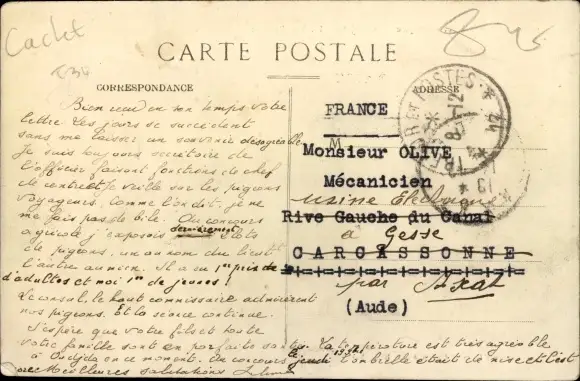 Cachet
CARTE POSTALE
CORRESPONDANCE
ADRESSE
Bien reçu en son temps votre
lettre. Les jours se succèdent
sans me laisser un souvenir désagréable
Je suis toujours secrétaire de
l'officier faisant fonctions de chef
de contrôle. Je veille sur les pigeons
voyageurs. Comme l'on dit, je ne
me fais pas de bile. Au concours
agricole j'exposais dernièrement
pigeons, un au nom du lieut
l'autre au mien. Il a eu 1er prix de
d'adultes et moi 1er de jeunes!
Le consul, le haut commissaire admirèrent
nos pigeons. Et la séance continue.
J'espère que votre fils et toute
votre famille sont en parfaite santé. La température est très agréable
à Oudjda en ce moment. Au concours de jeudi l'ombrelle était de mise et c'est
Meilleures salutations
FRANCE
M
Monsieur OLIVE
Mécanicien
Usine Electrique
Rive Gauche du Canal
à Gesse
CARCASSONNE
par Axat
(Aude)
POSTES